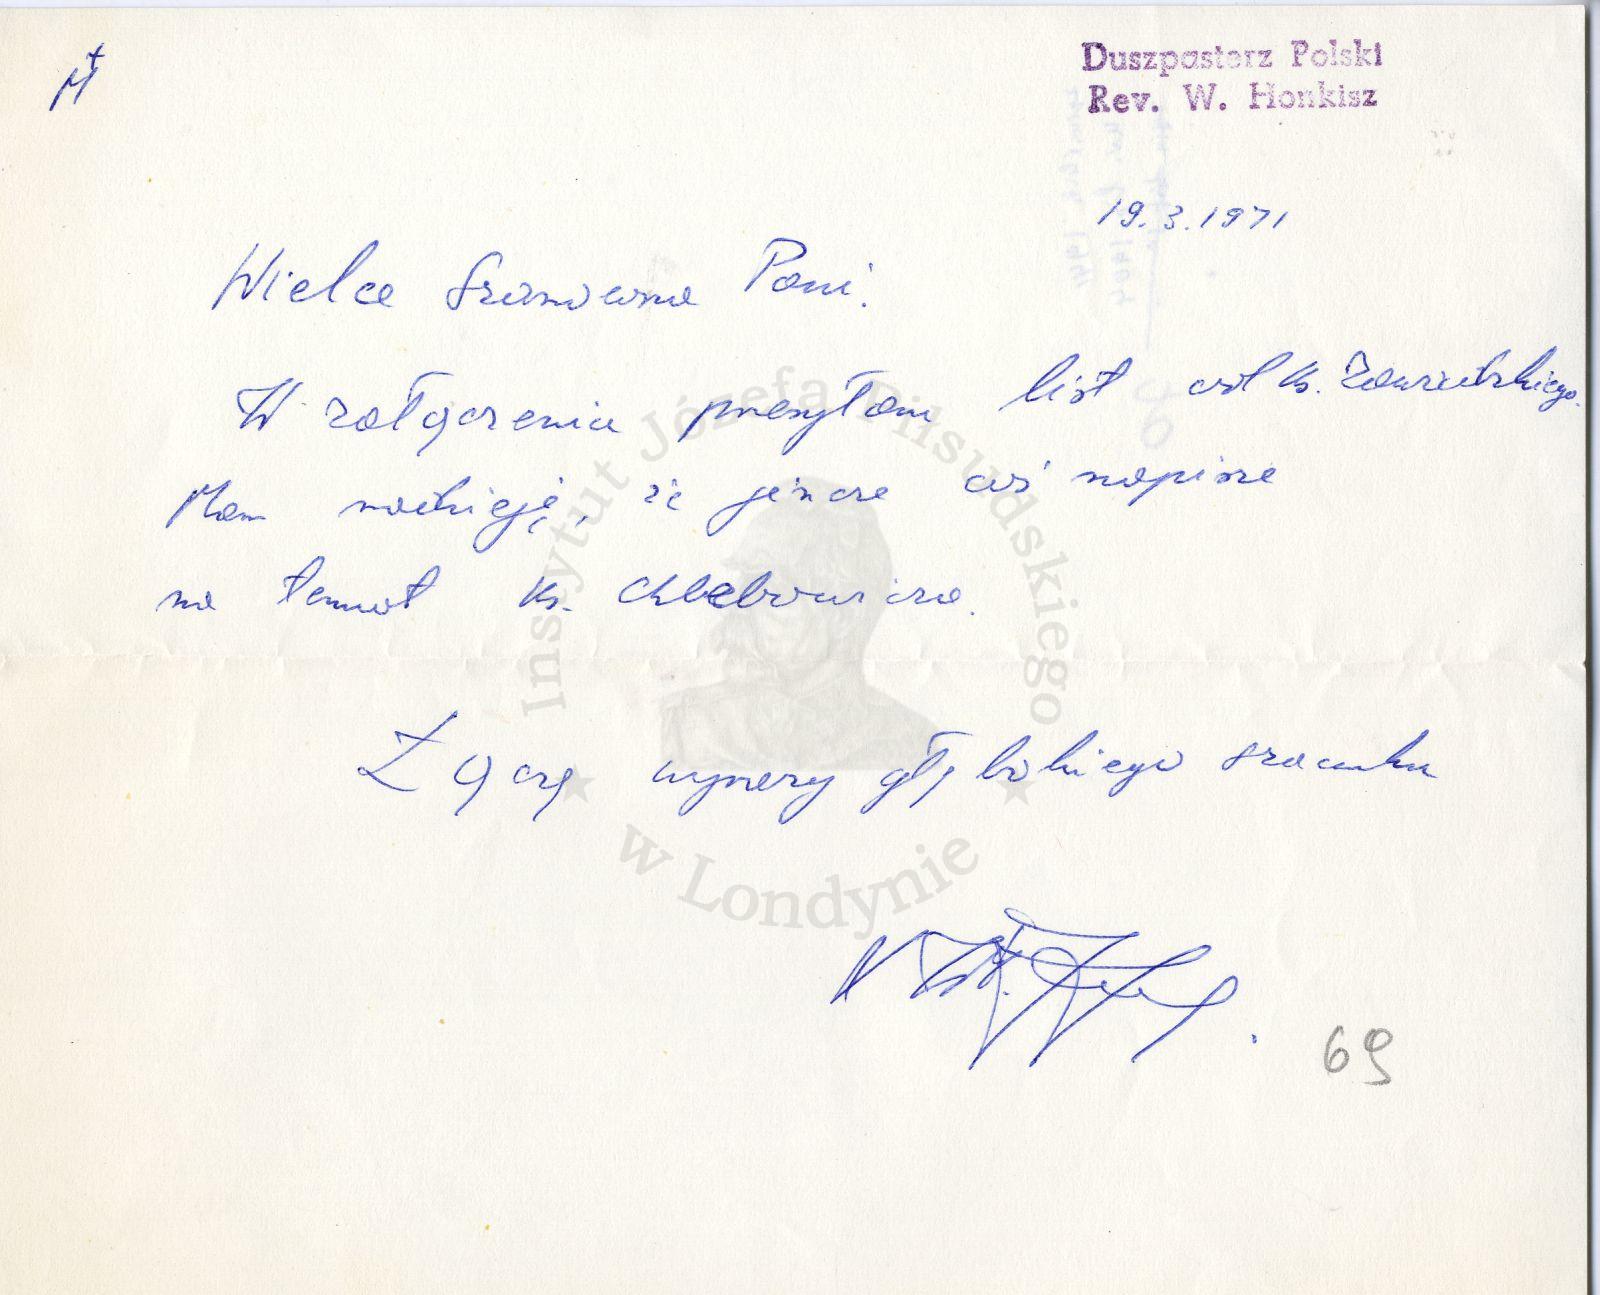 M
Duszpasterz Polski
Rev. W. Honkisz
19.3.1971
Wielce Szanowna Pani.
W załączeniu przesyłam list od ks. Zawidzkiego.
Mam nadzieję, że jeszcze coś napisze
na temat ks. Chlebowicza.
Łączę wyrazy głębokiego szacunku
69
Instytut Józefa Piłsudskiego
w Londynie